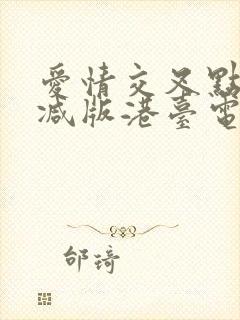 愛情交叉點
減版港臺電
邰琦